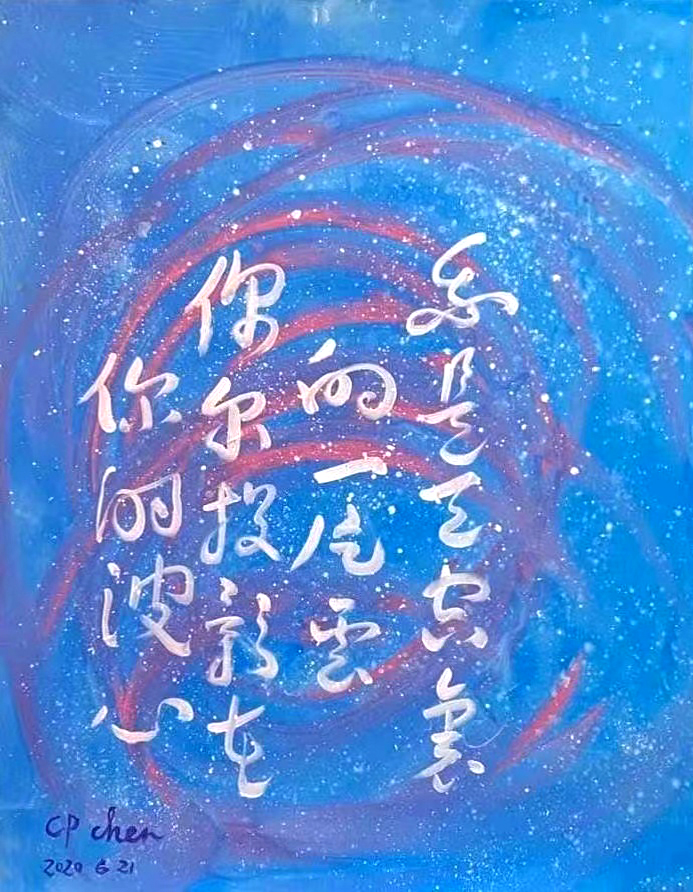 我是天空裏
的一片雲
偶尔投影在
你的波心
CP chen
2020 6 21